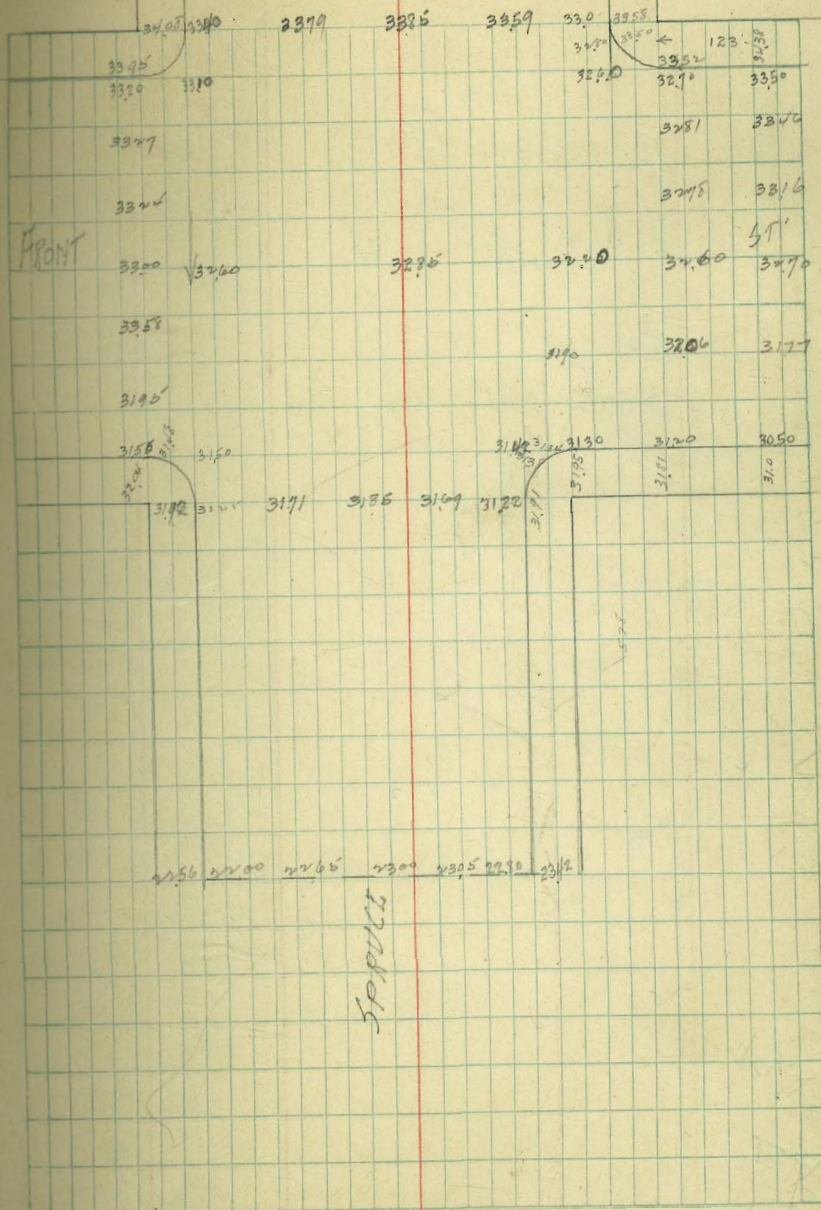 34.08 33.40 33.79 33.85 33.59 33.0 33.58
32.80 33.50 ← 123 34.38
33.95 33.52
33.20 33.10 32.60 32.70 33.50
33.27 32.81 33.46
33.24 32.78 33.16
FRONT ST
33.00 32.60 32.85 32.20 32.60 32.70
33.58 31.90 32.06 31.77
31.95
31.55 31.50 31.42 31.30 31.20 30.50
31.30 31.95 31.81 31.0
31.92 31.25 31.71 31.85 31.69 31.22 31.91
22.56 22.00 22.65 23.00 23.05 22.80 23.12
SPRUCE